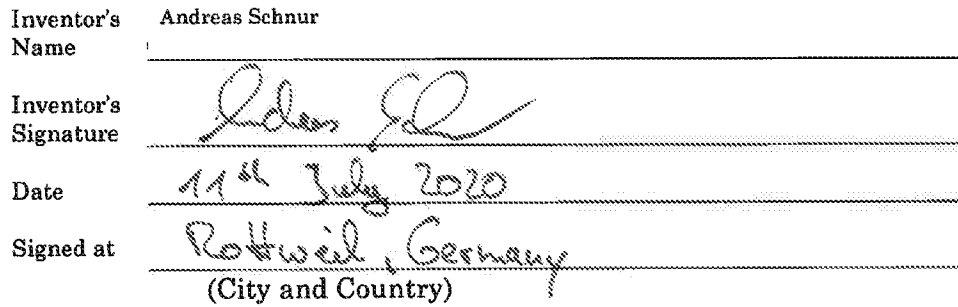 Inventor's Name Andreas Schnur
Inventor's Signature Andreas Schnur
Date 11th July 2020
Signed at Rottweil, Germany
(City and Country)